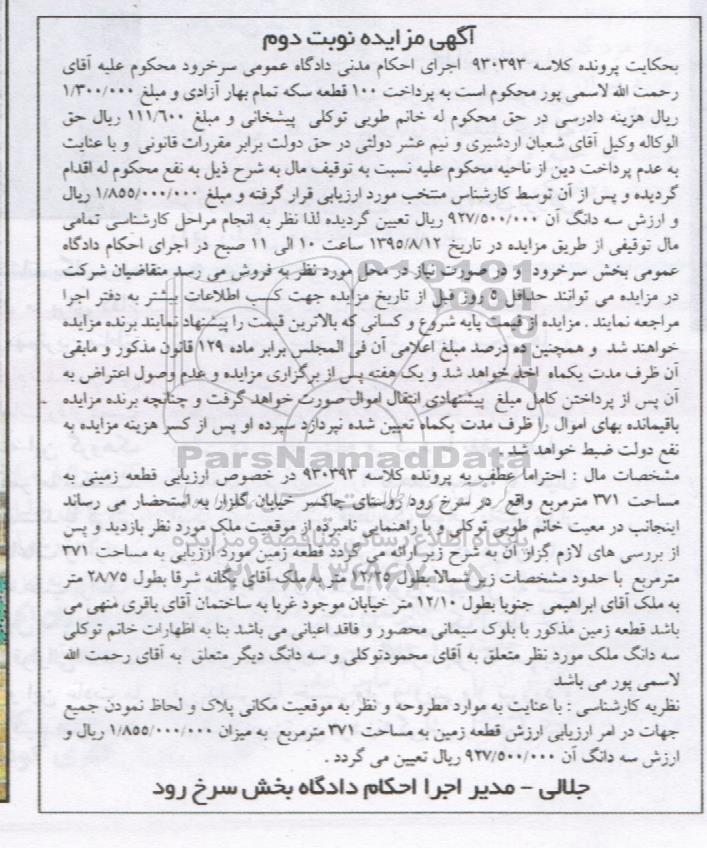 آگهی مزایده نوبت دوم
بحکایت پرونده کلاسه ۹۳۰۳۹۳ اجرای احکام مدنی دادگاه عمومی سرخرود محکوم علیه آقای
رحمت الله لاسمی پور محکوم است به پرداخت ۱۰۰ قطعه سکه تمام بهار آزادی و مبلغ ۱/۳۰۰/۰۰۰
ریال هزینه دادرسی در حق محکوم له خانم طوبی توکلی پیشخانی و مبلغ ۱۱۱/۶۰۰ ریال حق
الوکاله وکیل آقای شعبان اردشیری و نیم عشر دولتی در حق دولت برابر مقررات قانونی و با عنایت
به عدم پرداخت دین از ناحیه محکوم علیه نسبت به توقیف مال به شرح ذیل به نفع محکوم له اقدام
گردیده و پس از آن توسط کارشناس منتخب مورد ارزیابی قرار گرفته و مبلغ ۱/۸۵۵/۰۰۰/۰۰۰ ریال
و ارزش سه دانگ آن ۹۲۷/۵۰۰/۰۰۰ ریال تعیین گردیده لذا نظر به انجام مراحل کارشناسی تمامی
مال توقیفی از طریق مزایده در تاریخ ۱۳۹۵/۸/۱۲ ساعت ۱۰ الی ۱۱ صبح در اجرای احکام دادگاه
عمومی بخش سرخرود و در صورت نیاز در محل مورد نظر به فروش می رسد متقاضیان شرکت
در مزایده می توانند حداقل ۵ روز قبل از تاریخ مزایده جهت کسب اطلاعات بیشتر به دفتر اجرا
مراجعه نمایند . مزایده از قیمت پایه شروع و کسانی که بالاترین قیمت را پیشنهاد نمایند برنده مزایده
خواهند شد و همچنین ده درصد مبلغ اعلامی آن فی المجلس برابر ماده ۱۲۹ قانون مذکور و مابقی
آن ظرف مدت یکماه اخذ خواهد شد و یک هفته پس از برگزاری مزایده و عدم وصول اعتراض به
آن پس از پرداختن کامل مبلغ پیشنهادی انتقال اموال صورت خواهد گرفت و چنانچه برنده مزایده
باقیمانده بهای اموال را ظرف مدت یکماه تعیین شده نپردازد سپرده او پس از کسر هزینه مزایده به
نفع دولت ضبط خواهد شد .
ParsNamadData
مشخصات مال : احتراما عطف به پرونده کلاسه ۹۳۰۳۹۳ در خصوص ارزیابی قطعه زمینی به
مساحت ۳۷۱ مترمربع واقع در سرخ رود روستای خیابان گلزار به استحضار می رساند
اینجانب در معیت خانم طوبی توکلی و با راهنمایی نامبرده از موقعیت ملک مورد نظر بازدید و پس
پایگاه اطلاع رسانی مناقصه و مزایده
از بررسی های لازم گزار آن به شرح زیر ارائه می گردد قطعه زمین مورد ارزیابی به مساحت ۳۷۱
مترمربع با حدود مشخصات زیر شمالا بطول ۱۲/۲۵ متر به ملک آقای یگانه شرقا بطول ۲۸/۷۵ متر
به ملک آقای ابراهیمی جنوبا بطول ۱۲/۱۰ متر خیابان موجود غربا به ساختمان آقای باقری منتهی می
باشد قطعه زمین مذکور با بلوک سیمانی محصور و فاقد اعیانی می باشد بنا به اظهارات خانم توکلی
سه دانگ ملک مورد نظر متعلق به آقای محمودتوکلی و سه دانگ دیگر متعلق به آقای رحمت الله
لاسمی پور می باشد
نظریه کارشناسی : با عنایت به موارد مطروحه و نظر به موقعیت مکانی پلاک و لحاظ نمودن جمیع
جهات در امر ارزیابی ارزش قطعه زمین به مساحت ۳۷۱ مترمربع به میزان ۱/۸۵۵/۰۰۰/۰۰۰ ریال و
ارزش سه دانگ آن ۹۲۷/۵۰۰/۰۰۰ ریال تعیین می گردد .
جلالی – مدیر اجرا احکام دادگاه بخش سرخ رود